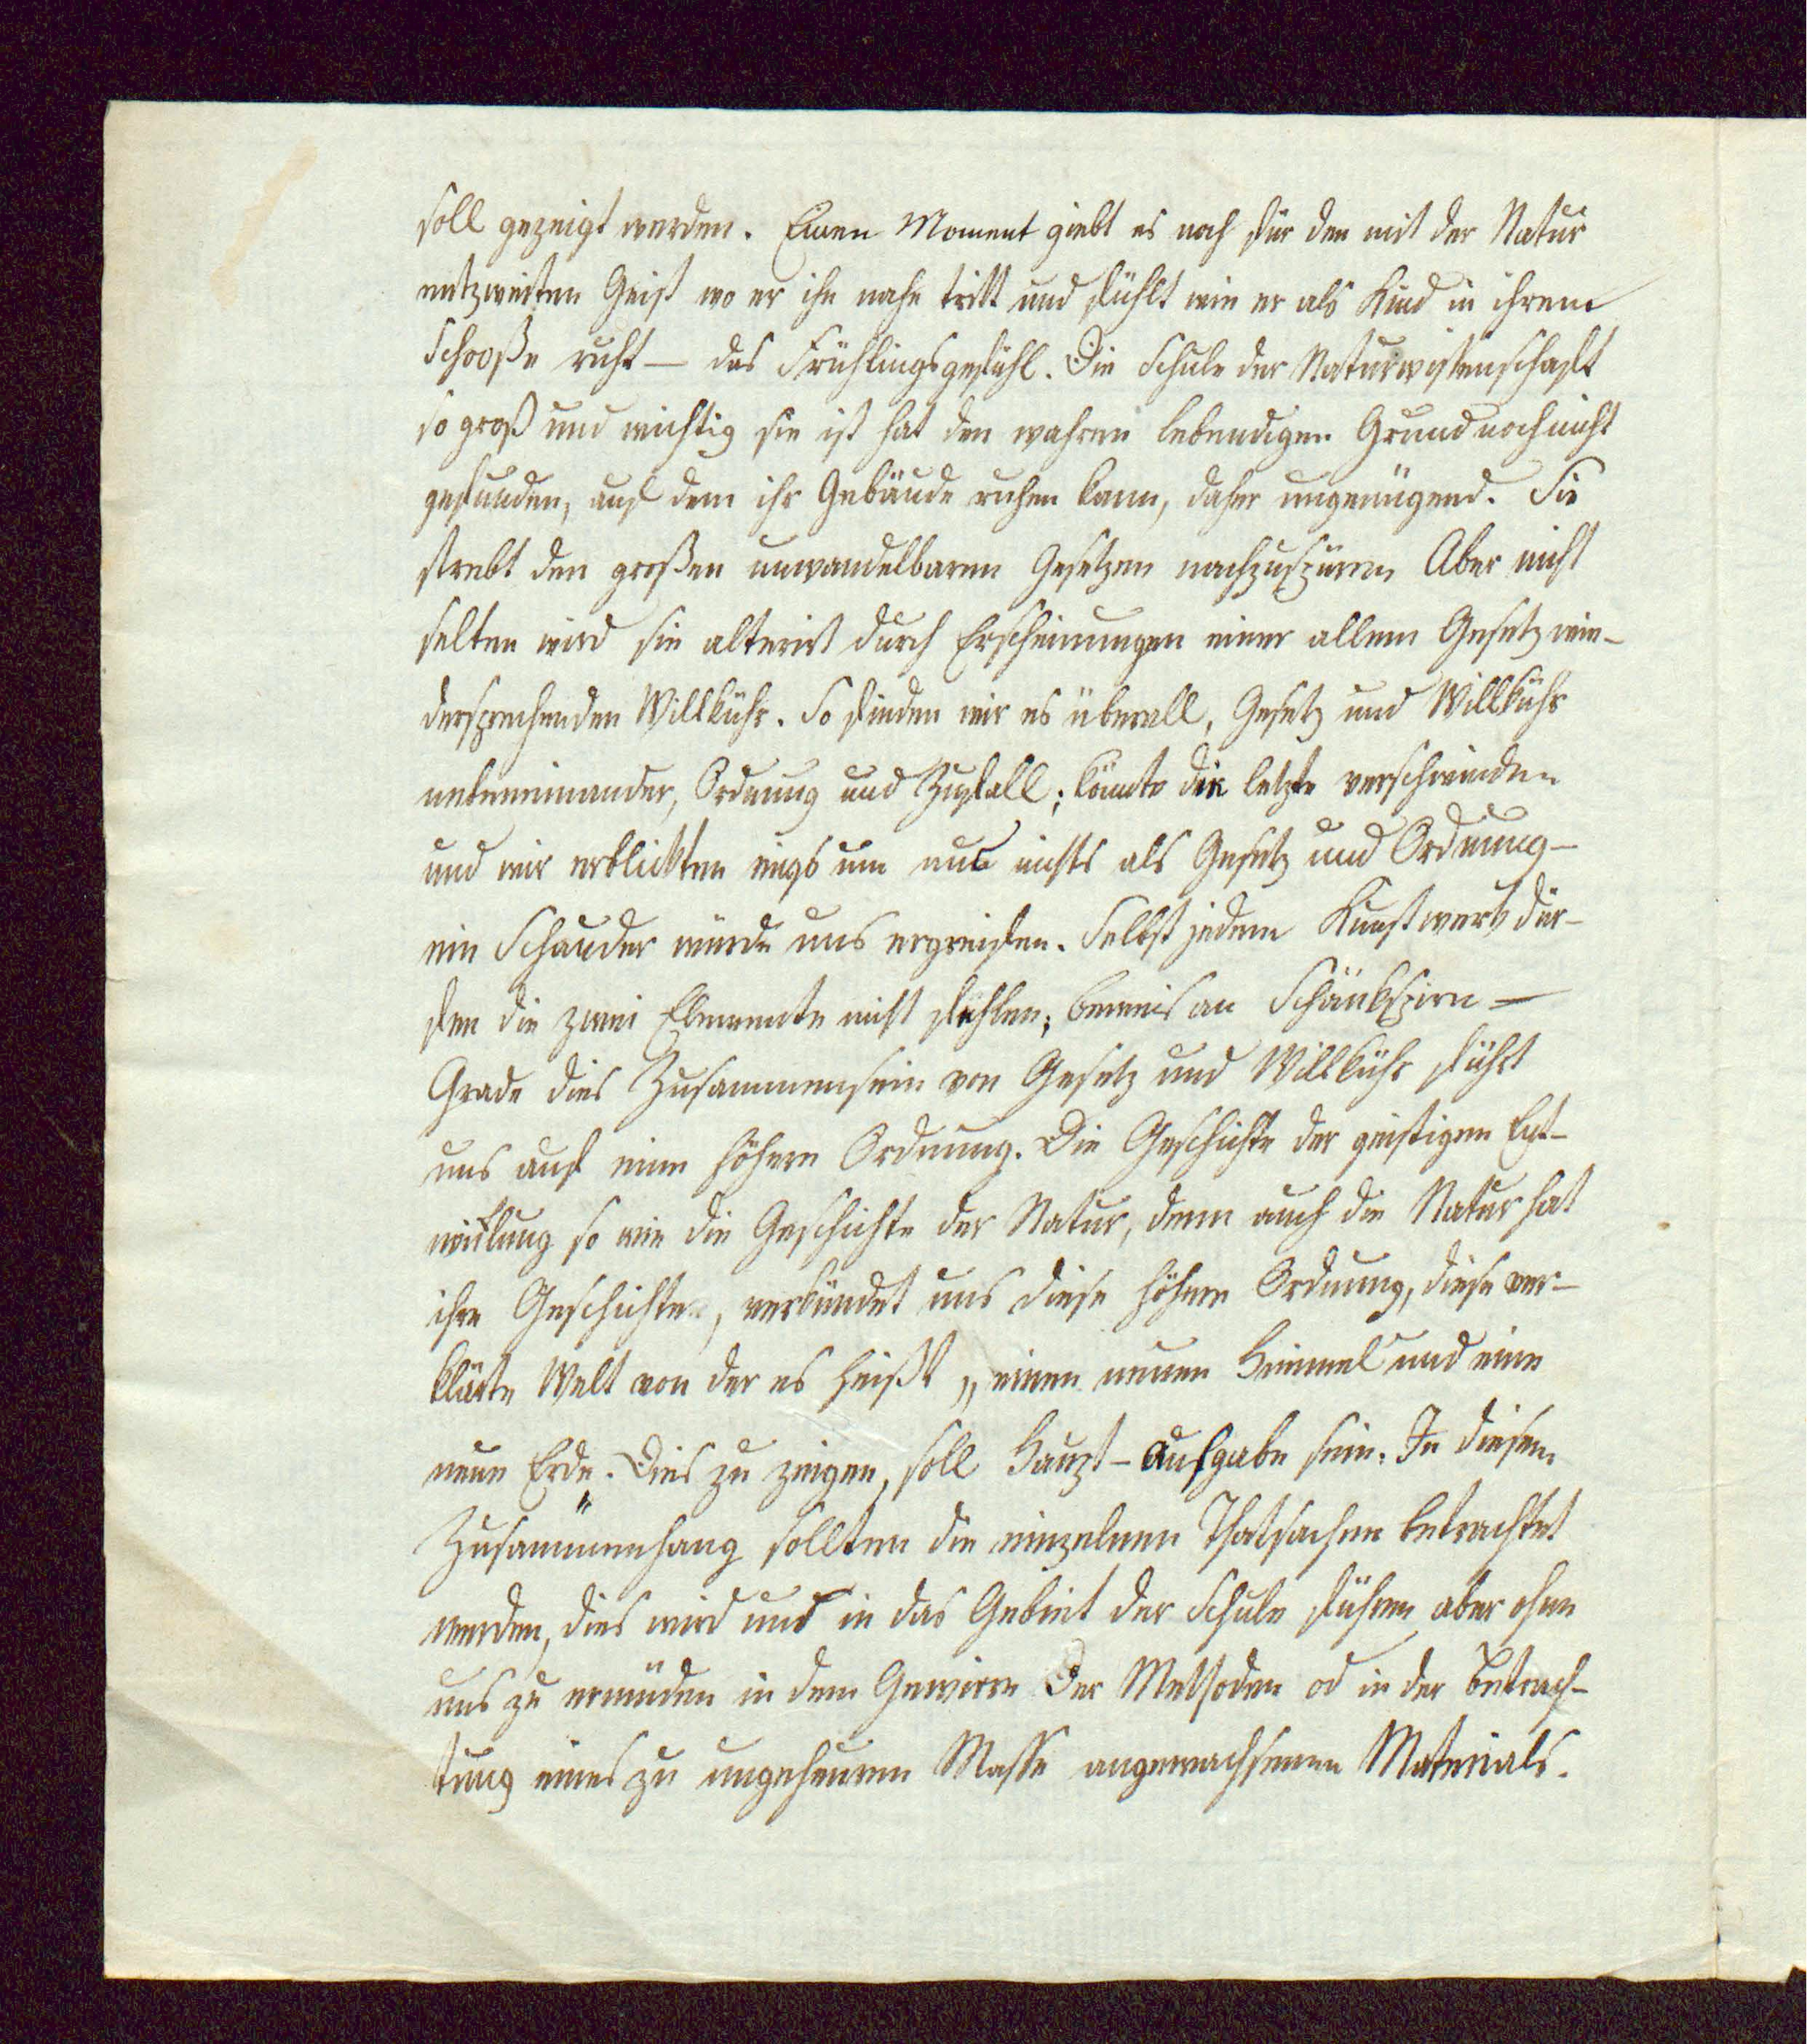 soll gezeigt werden. Einen Moment giebt es noch für den mit der Natur
entzweiten Geist wo er ihr nahe tritt und fühlt wie er als Kind in ihrem
Schooße ruht — das Frühlingsgefühl. Die Schule der Naturwissenschaft
so groß und wichtig sie ist hat den wahren lebendigen Grund noch nicht
gefunden, auf dem ihr Gebäude ruhen kann, daher ungenügend. Sie
strebt den großen unwandelbaren Gesetzen nachzuspüren Aber nicht
selten wird sie alterirt durch Erscheinungen einer allem Gesetz wie-
dersprechenden Willkühr. So finden wir es überall, Gesetz und Willkühr
nebeneinander, Ordnung und Zufall; könnte die letzte verschwinden
und wir erblickten rings um uns nichts als Gesetz und Ordnung —
ein Schauder würde uns ergreifen. Selbst jedem Kunstwerk dür-
fen die zwei Elemente nicht fehlen; beweis an Schäkspirn —
Grade dies Zusammensein von Gesetz und Willkühr führt
uns auf eine höhere Ordnung. Die Geschichte der geistigen Ent-
wicklung so wie die Geschichte der Natur, denn auch die Natur hat
ihre Geschichte, verkündet uns diese höhere Ordnung, diese ver-
klärte Welt von der es heißt „einen neuen Himmel und eine
neue Erde." Dies zu zeigen, soll Haupt-Aufgabe sein. In diesem
Zusammenhang sollten die einzelnen Thatsachen betrachtet
werden, dies wird uns in das Gebiet der Schule führen aber ohne
uns zu ermüden in dem Gewirre der Methoden od in der Betrach-
tung eines zu ungeheuren Masse angewachsenen Materials.